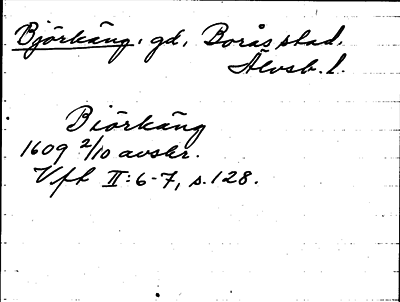 Björkäng, gd, Borås stad,
Älvsb. l.
Biörkäng
1609 2/10 avskr.
Vft II:6-7, s.128.